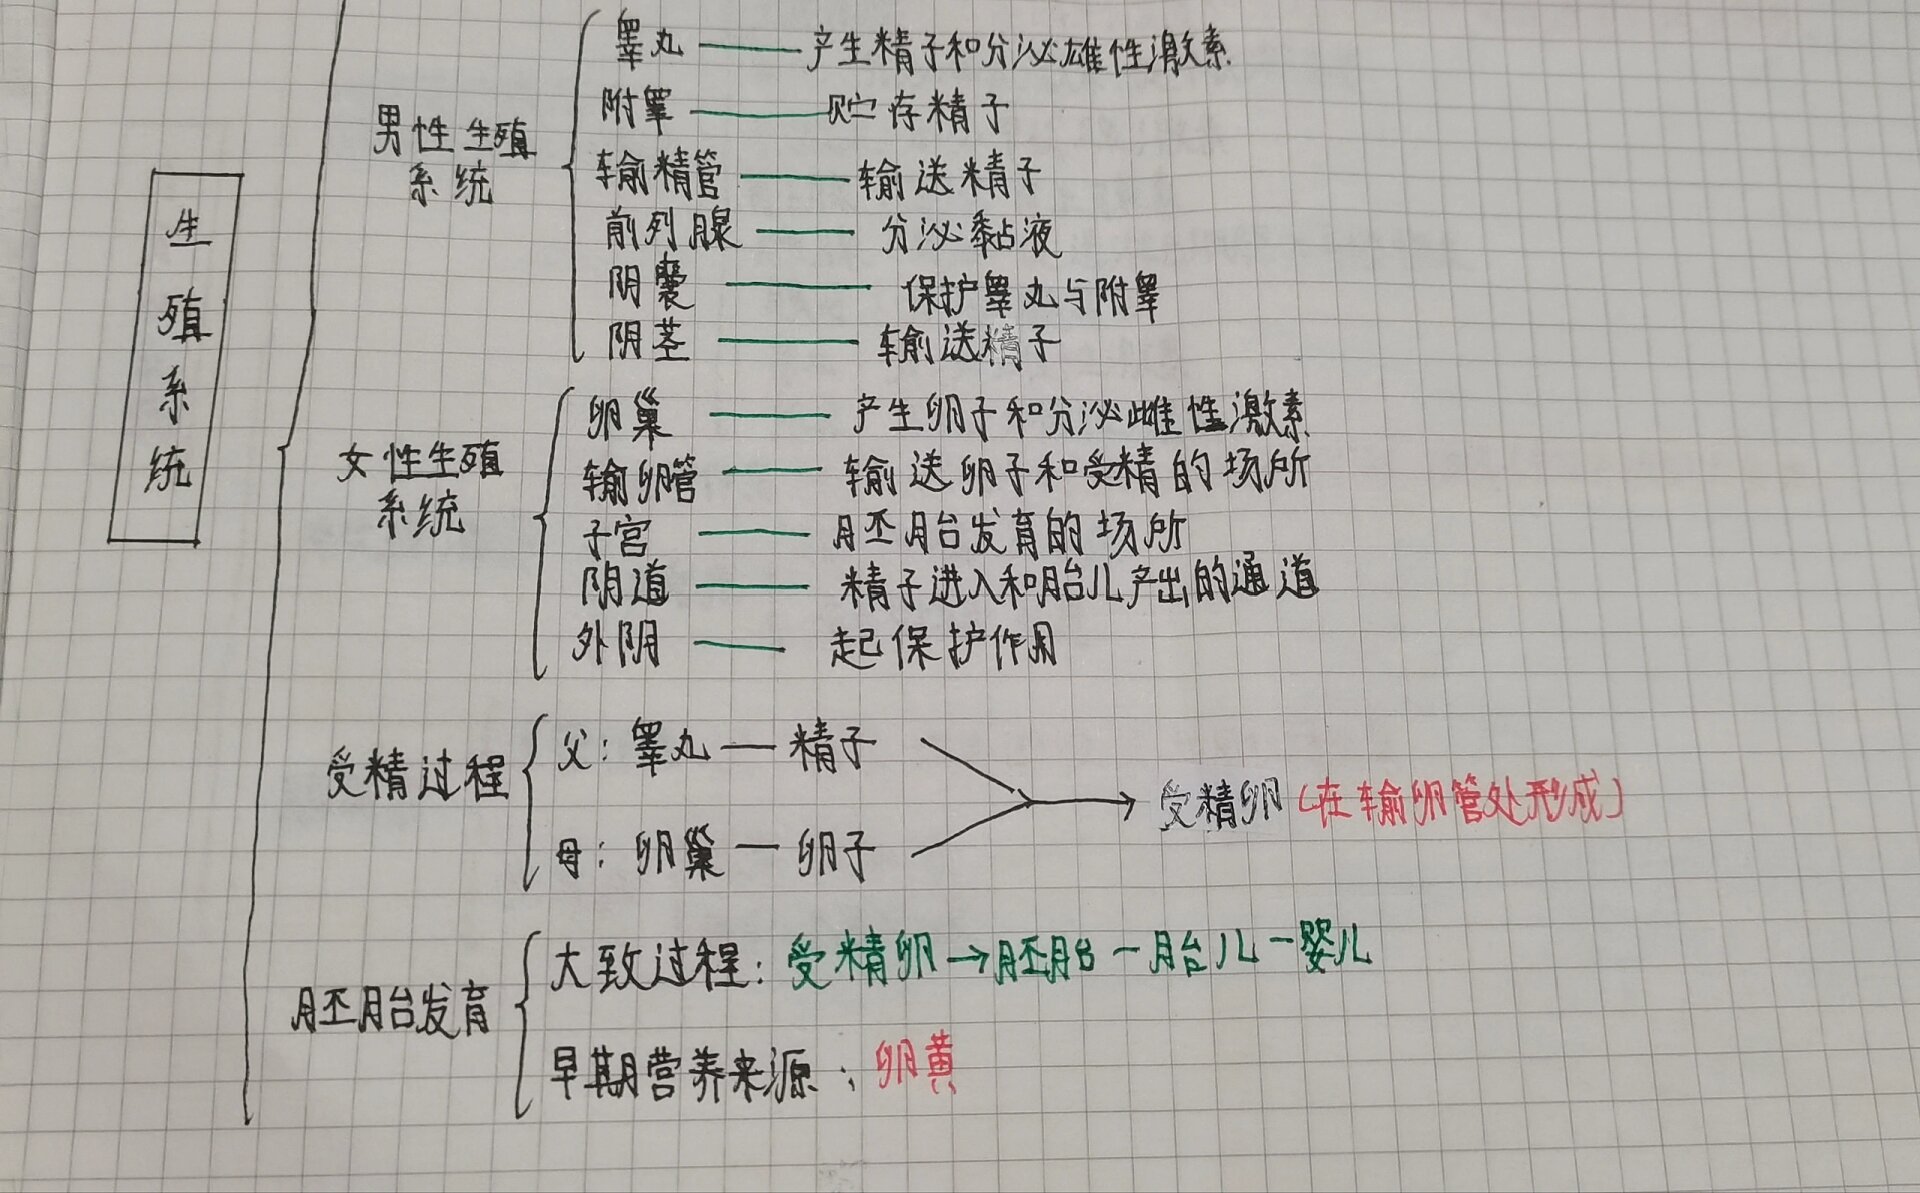 生殖系统
男性生殖
系统
睾丸 —— 产生精子和分泌雄性激素
附睾 —— 贮存精子
输精管 —— 输送精子
前列腺 —— 分泌黏液
阴囊 —— 保护睾丸与附睾
阴茎 —— 输送精子
女性生殖
系统
卵巢 —— 产生卵子和分泌雌性激素
输卵管 —— 输送卵子和受精的场所
子宫 —— 胚胎发育的场所
阴道 —— 精子进入和胎儿产出的通道
外阴 —— 起保护作用
受精过程
父：睾丸 — 精子
母：卵巢 — 卵子
→ 受精卵（在输卵管处形成）
胚胎发育
大致过程：受精卵→胚胎-胎儿-婴儿
早期营养来源：卵黄